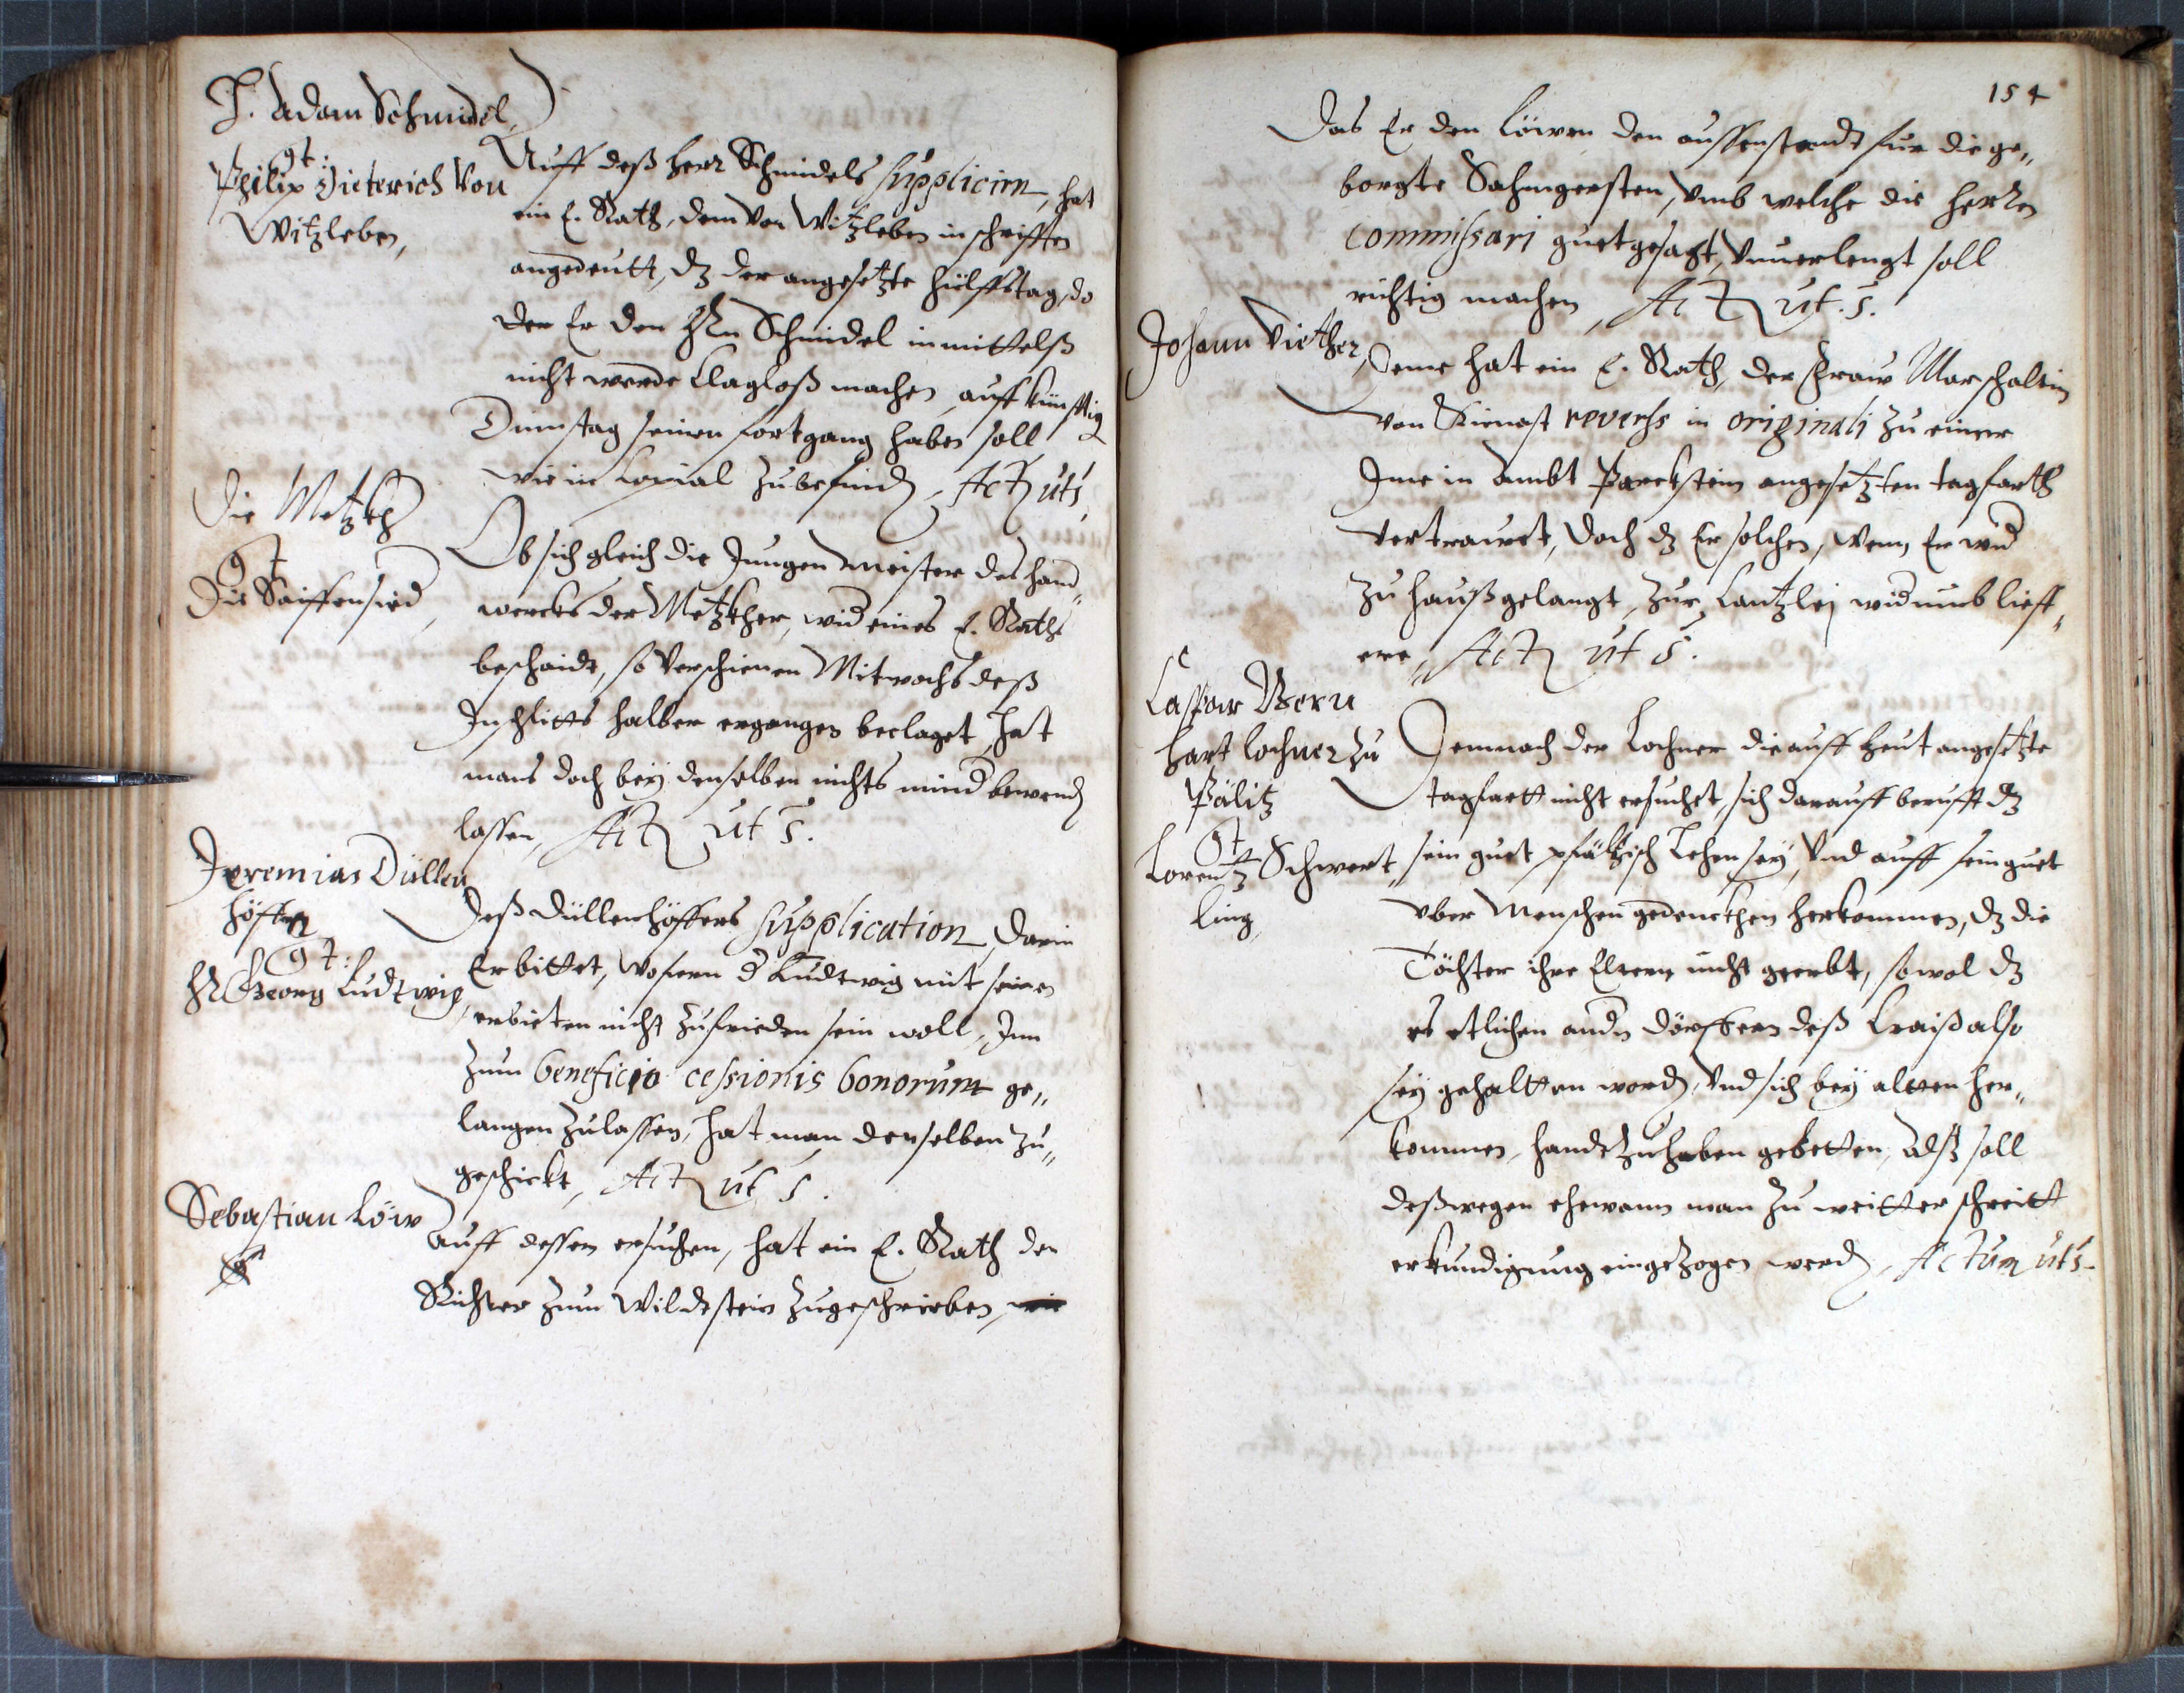 H. Adam Schmidel,
gt:
Philip Dieterich von
Witzleben,
Auff deß herr Schmidels supplicirn, hat
ein E. Rath, dem von Witzleben in schrifften
angedeutt, dz der angesetzte hülffstag, do
der Er den Hrn Schmidel inmittelß
nicht werde klagloß machen, auff künfftig
Dinstag seinen fortgang haben soll
wie in Copial zubefind, Act ut s.
Die Metzkh
gt
Die Saiffensied,
Ob sich gleich die Jungen meister des hand„
wercks der Metzkher, wid eines E. Raths
beschaidt, so verschienen Mitwochs deß
Inschlitts halber ergangen beclaget, hat
mans doch bey denselben nichts mind bewend
lassen, Act ut s.
Jeremias Düllen
höffer
gt:
Hr Georg Ludtwig,
Deß Düllenhöffers supplication, darin
Er bittet, wofern d Ludtwig mit seinen
erbieten nicht zufrieden sein woll, Inn
zum beneficio cessionis bonorum ge„
langen zulassen, hat man denselben zu„
geschickt, Act ut s.
Sebastian Löw
Auff dessen ersuchen, hat ein E. Rath den
Richter zum Wildstein zugeschrieben, wie
154
Das Er den Löwen den aussenstandt fur die ge„
borgte Sahmgersten, umb welche die herrn
Commissari guetgesagt, vnuerlengt soll
richtig machen, Act ut s.
Johann Viether,
Deme hat ein E. Rath, der fraw Marschaltin
von Kienast reverss in originali zu einer
Ime in Ambt Parckstein angesetzten tagfarth
vertrawet, doch dz Er solchen, wenn Er wid
zu hauß gelangt, zur Cantzlej widumb lieff„
ere, Act ut s.
Caspar Bern
hart Lochner zu
Pälitz
gt
Lorentz Schwert
ling,
Demnach der Lochner die auff heut angesetzte
tagfartt nicht ersuchet, sich darauff berufft dz
sein guet pfältzisch Lehen sey, vnd auff sein guet
vber Menschen gedenckhen herkommen, dz die
Töchter ihre Eltern nicht geerbt, sowol dz
es etlichen andn dörffern deß Craiß also
sey gehaltten word, vnd sich bey altten her„
kommen, handtzuhaben gebetten, Alß soll
deßwegen ehewann man zu weitter schreitt
erkundigung eingezogen werd, Actum ut s.